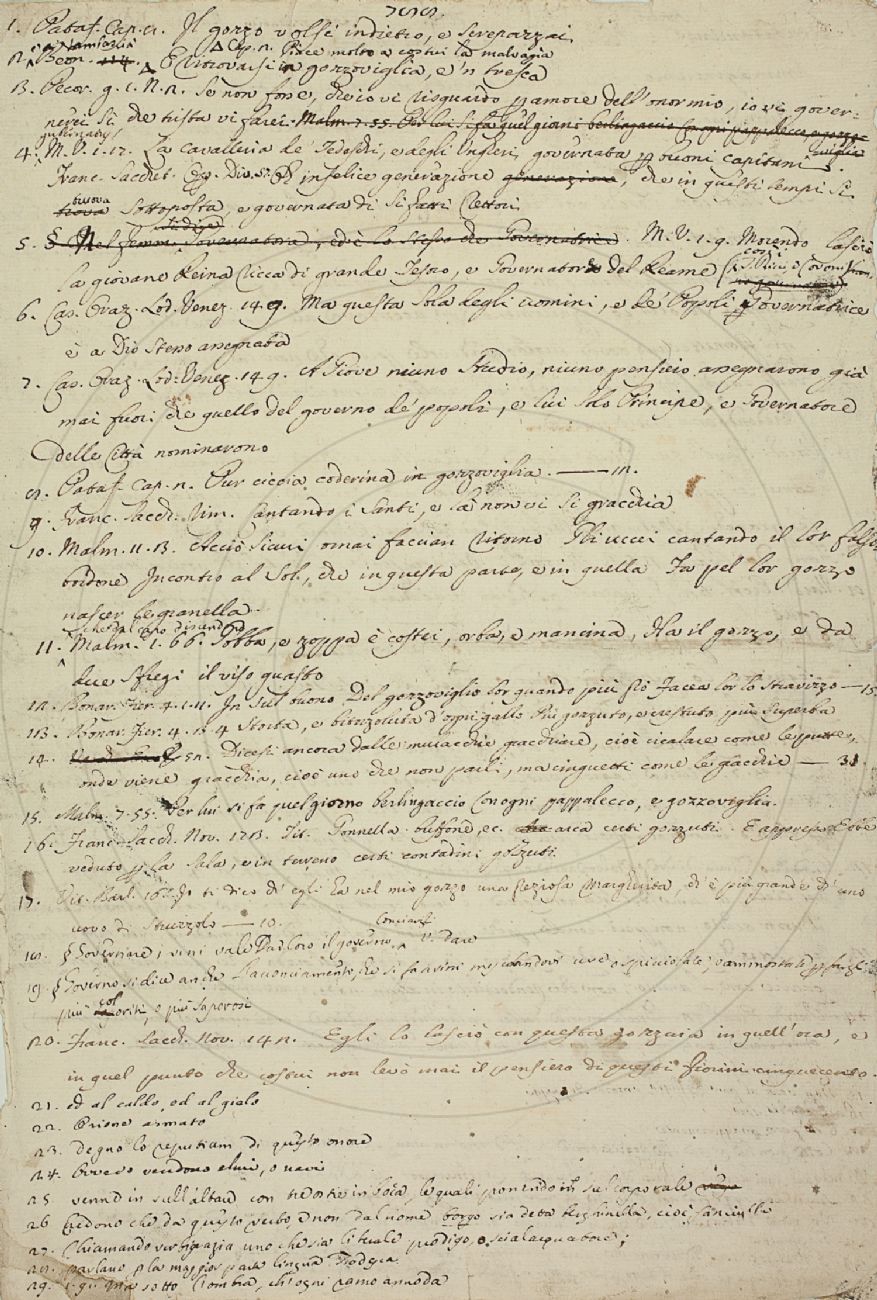 1. Pataf. Cap. 8. Il gozzo volse indietro, e screpazzai
Δ Cap. n. Piace molto a costui la malvagia
2. Beon. 114. Δ E ritrovarsi in gozzoviglia, e 'n tresca
3. Pecor. g. 1. N. 2. Se non fosse, che io vi risguardo p amore dell' onor mio, io vi gover-
nerei sì che trista vi farei. Malm. 7. 55. Per lui si fa quel giorno berlingaccio Con ogni pappalecco e gozzo-
viglia
4. M. V. 1. 17. La cavalleria de' Tedeschi, e degli Ungheri, governata p buoni capitani
Franc. Sacchet. Op. Div. 57. O infelice generazione generazione, che in questi tempi si
truova sottoposta, e governata di sì fatti Rettori
5. § Nel femm. Governatora, ed è lo stesso che Governatrice. M. V. 1. 9. Morendo lasciò
la giovane Reina ricca di grande Tesoro, e Governatore del Reame
6. Cas. Oraz. Lod. Venez. 149. Ma questa sola degli uomini, e de' Popoli Governatrice
è a Dio stesso assegnata
7. Cas. Oraz. Lod. Venez. 149. A Giove niuno studio, niuno pensiero assegnarono già
mai fuori che quello del governo de' popoli, e lui solo Principe, e Governatore
delle Città nominarono
8. Pataf. Cap. n. Pur cicoia coderina in gozzoviglia. —— 12.
9. Franc. Sacch. Rim. Cantando i Santi, e là non vi si gracchia
10. Malm. 11. 13. Acciò sicuri omai faccian ritorno Gli uccei cantando il lor falso
bordone Incontro al Sol, che in questa parte, e in quella Fa pel lor gozzo
nascer le granella.
11. Malm. 1. 66. Gobba, e zoppa è costei, orba, e mancina, Ha il gozzo, e da
due sfregi il viso guasto
12. Bonar. Fier. 4. 1. 11. In sul buono Del gozzoviglio lor quando più Gio Facea lor lo stravizzo — 15
13. Bonar. Fier. 4. 1. 4 Storta, e bitorzoluta d'ogni gallo Più gozzuto, e crestuto più superba
14. 52. Dicesi ancora dalle mulacchie gracchiare, cioè cicalare come le putte,
onde viene gracchia, cioè uno che non parli, ma cinguetti come le gracchie — 31.
15. Malm. 7. 55. Per lui si fa quel giorno berlingaccio Con ogni pappalecco, e gozzoviglia.
16. Franc. Sacch. Nov. 173. Tit. Gonnella buffone ec. arca certi gozzuti. E appresso. Ebbe
veduto p la sala, e in terreno certi contadini gozzuti.
17. Vit. Barl. 16. Io ti dico ch' egli ha nel mio gozzo una preziosa Margherita, ch' è più grande ch' uno
uovo di Struzzolo — 10.
Conciarsi
18. § Governare i vini vale Dar loro il governo. V. Dare
19. § Governo si dice anche l'acconciamento, che si fa a' vini mescolandovi uve spicciolate, o ammostate p fargli
più coloriti, e più saporosi
20. Franc. Sacch. Nov. 14 n. Egli lo lasciò con questa gozzaia in quell'ora, e
in quel punto che costui non levò mai il pensiero di questi fiorini cinquecento.
21. ed al caldo, ed al gielo
22. Prione armato
23. degno lo reputiam di questo onore
24. Ovvero vendono elmi, o navi
25 venne in sull'altare con tre ostie in boca, le quali ponendo in sul corporale
26 credono che da questo verbo, e non dal nome borgo sia detta berghinella, cioè fanciulla
27. Chiamando verbigrazia uno che sia liberale prodigo, o scialacquatore;
28. parlano p la maggior parte lingua Todesca
29. 1. 91. Ma sotto l'ombra, ch'ogni ramo annoda